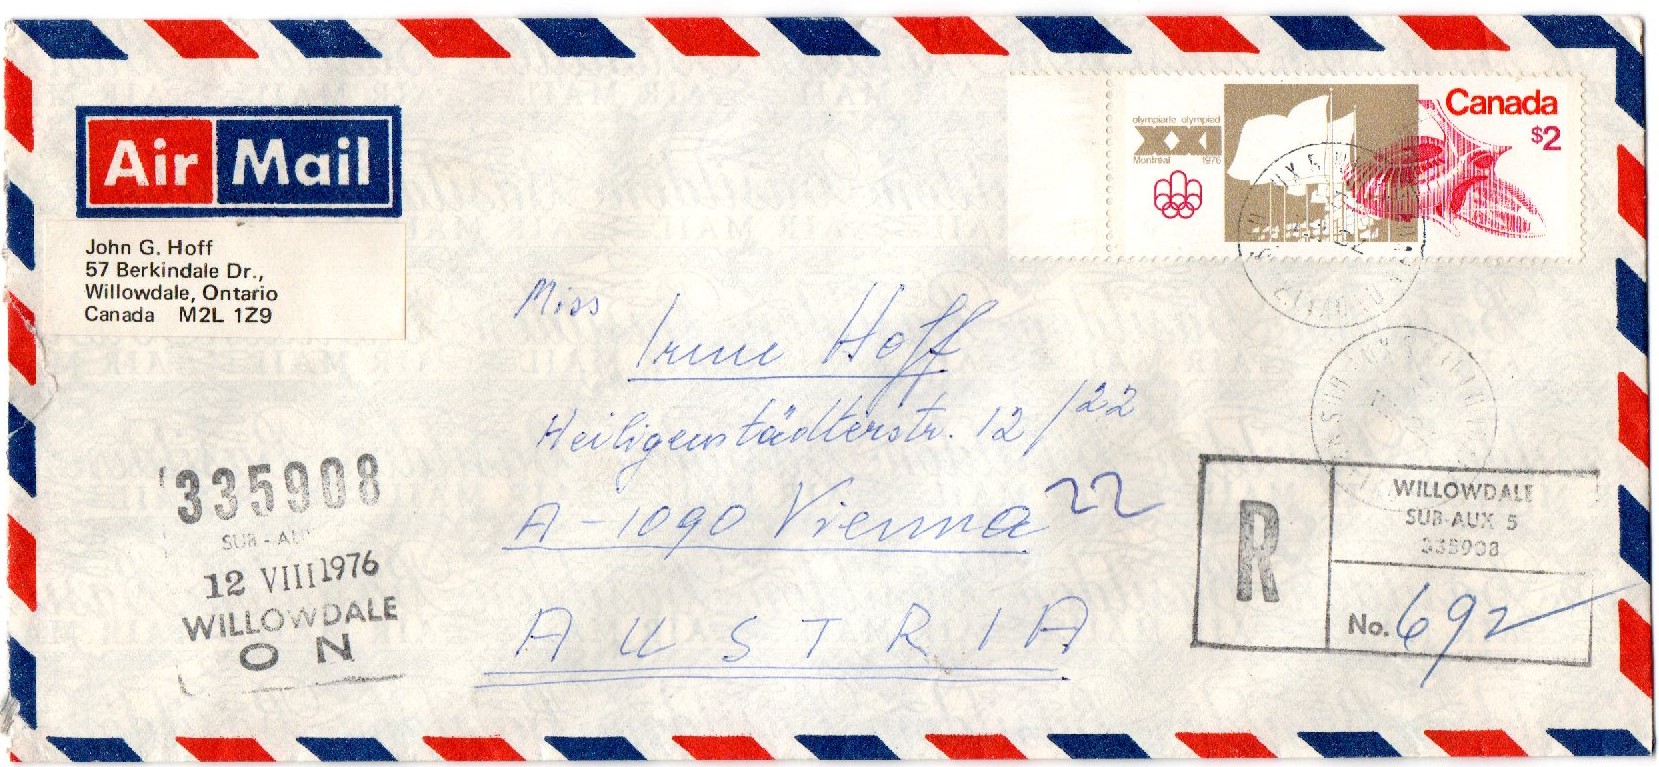 Air Mail
John G. Hoff
57 Berkindale Dr.,
Willowdale, Ontario
Canada M2L 1Z9
olympiade olympiad
XXI
Montréal 1976
Canada
$2
Miss
Irene Hoff
Heiligenstädterstr. 12/22
A-1090 Vienna
22
AUSTRIA
335908
SUB-AU
12 VIII 1976
WILLOWDALE
ON
R
WILLOWDALE
SUB-AUX 5
335908
No. 692